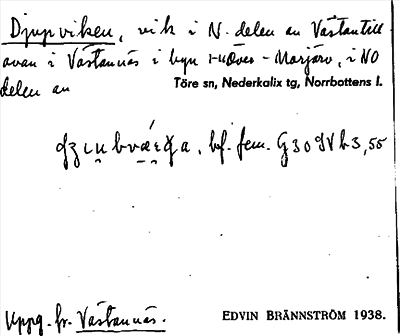 Djupviken, vik i N. delen av Västantill
avan i Västannäs i byn Över-Morjärv, i NO
delen av Töre sn, Nederkalix tg, Norrbottens l.
bf. fem. G 30 d V h 3,55
Uppg. fr. Västannäs.
EDVIN BRÄNNSTRÖM 1938.